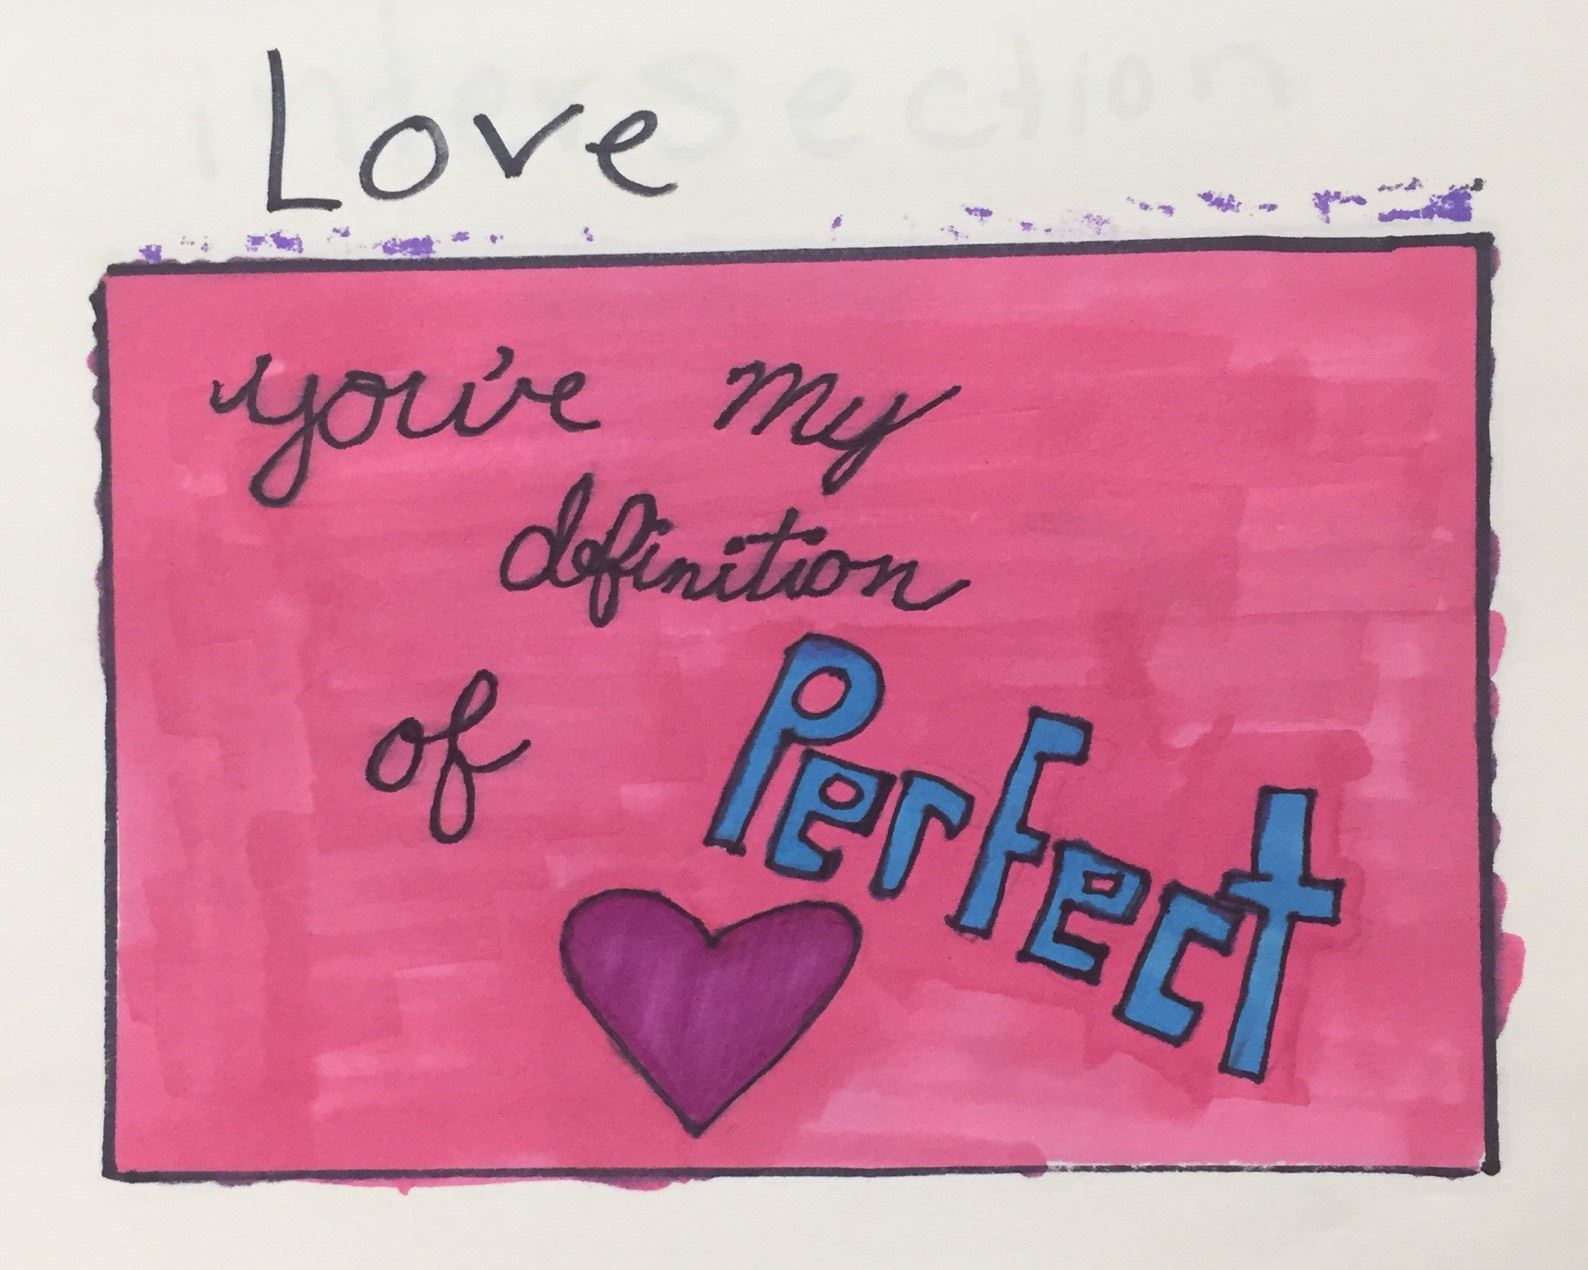 Love
intersection
you're my
definition
of Perfect